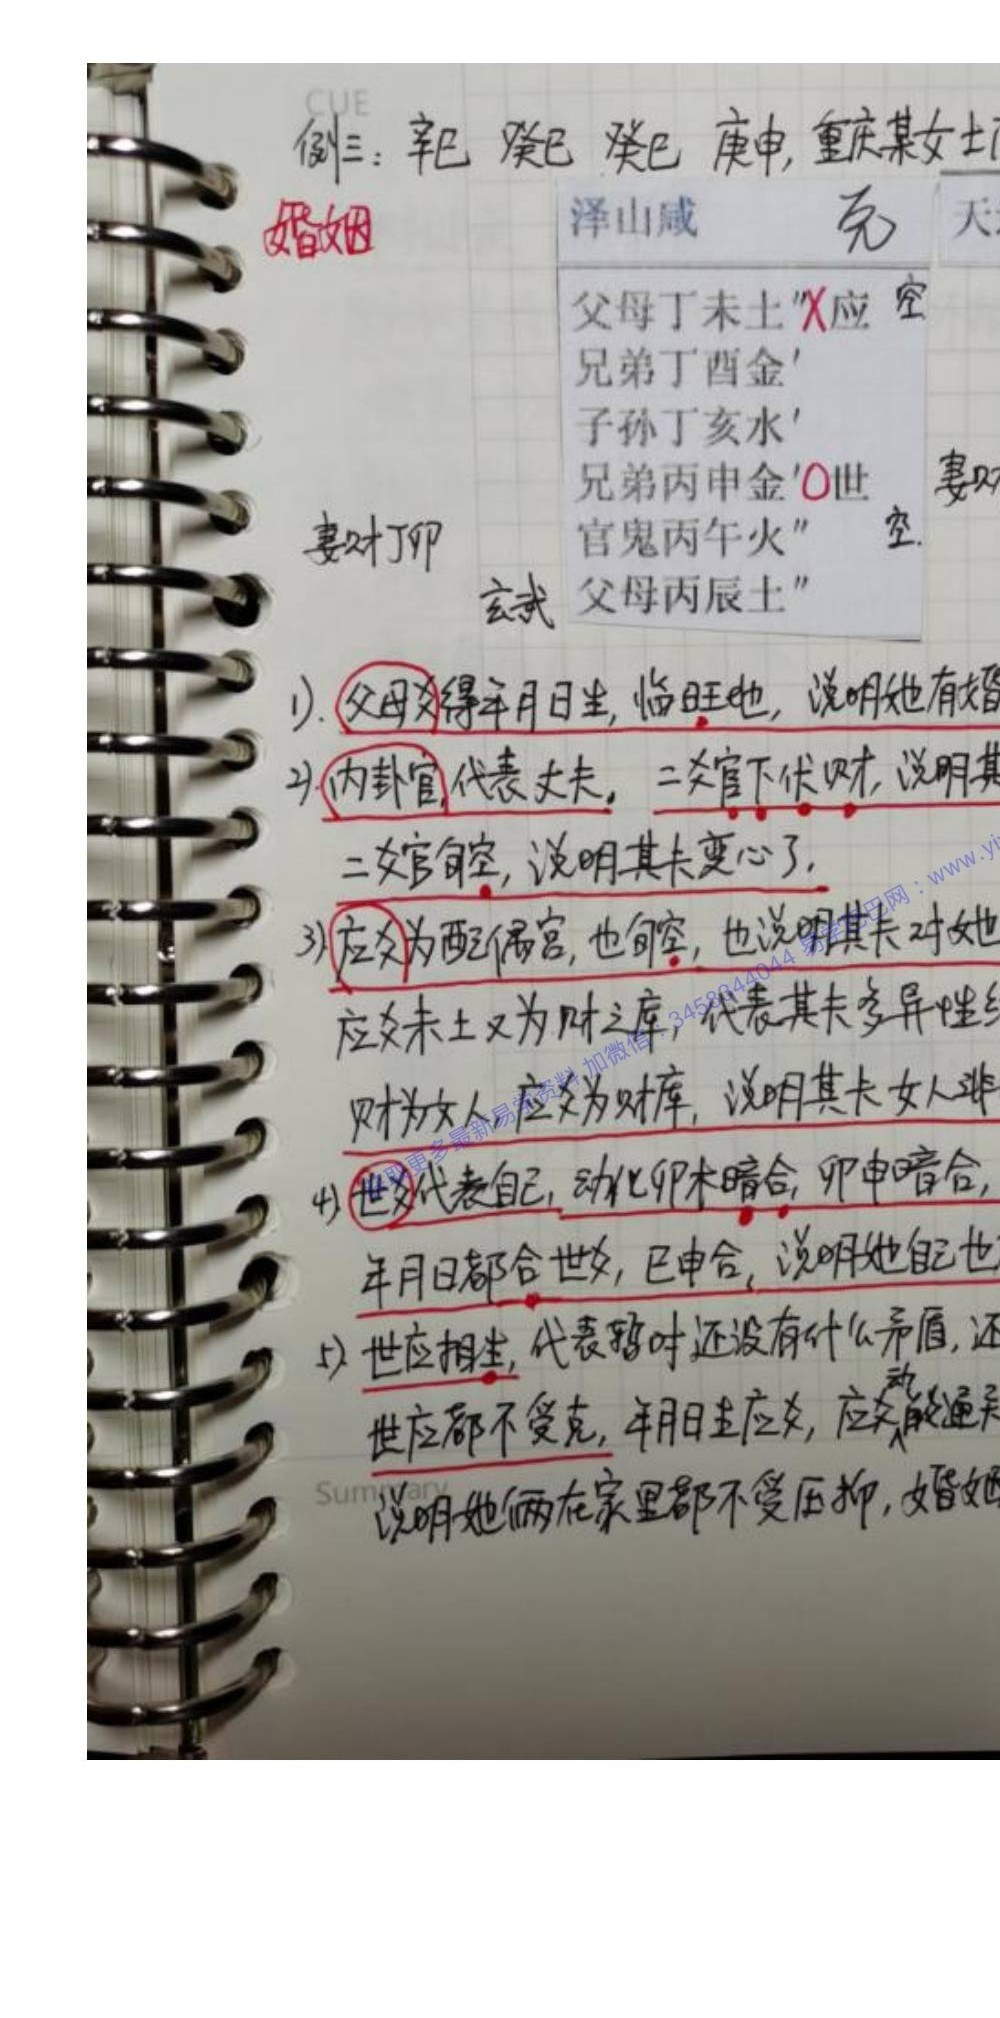 CUE
例三：辛巳 癸巳 癸巳 庚申，重庆某女士
婚姻
泽山咸 克 天
父母丁未土"X应 空
兄弟丁酉金'
子孙丁亥水'
兄弟丙申金'O世 妻财
妻财丁卯 官鬼丙午火" 空.
玄武 父母丙辰土"
1). 父母爻得年月日生，临旺也，说明她有婚
2) 内卦官代表丈夫。二爻官下伏财，说明其
二爻官旬空，说明其夫变心了.
3) 应爻为配偶宫，也旬空，也说明其夫对她
应爻未土又为财之库，代表其夫多异性
财为女人，应爻为财库，说明其夫女人
4) 世爻代表自己，动化卯木暗合，卯申暗合，
年月日都合世爻，巳申合，说明她自己也
5) 世应相生，代表暂时还没有什么矛盾，还
世应都不受克，年月日生应爻，应爻动能通关
Summary
说明她俩在家里都不受压抑，婚姻
更多最新易学资料 加微信：3458344044 易学吧巴网：www.yi